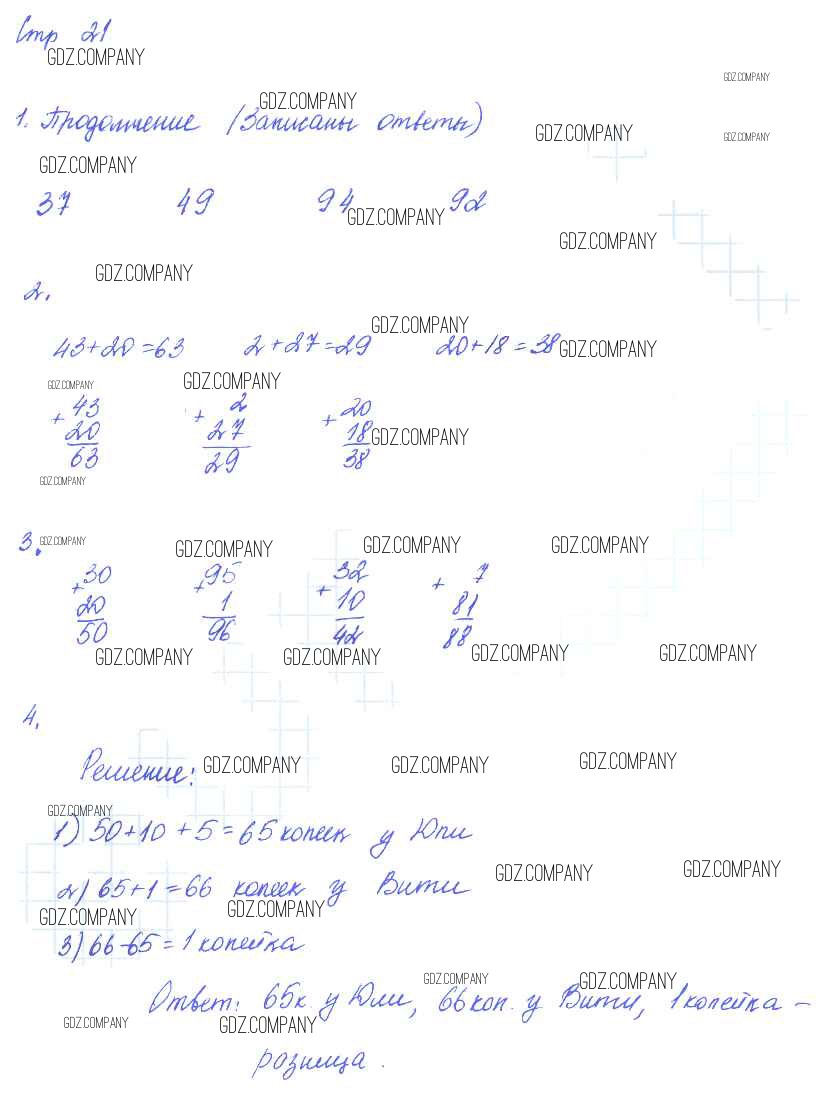 Стр 21
GDZ.COMPANY
GDZ.COMPANY
GDZ.COMPANY
1. Продолжение (Записаны ответы)
GDZ.COMPANY
GDZ.COMPANY
GDZ.COMPANY
37 49 94 92
GDZ.COMPANY
GDZ.COMPANY
GDZ.COMPANY
2.
GDZ.COMPANY
43+20=63 2+27=29 20+18=38
GDZ.COMPANY
GDZ.COMPANY GDZ.COMPANY
+ 43 + 2 + 20
20 27 18
GDZ.COMPANY
63 29 38
GDZ.COMPANY
3.
GDZ.COMPANY GDZ.COMPANY GDZ.COMPANY GDZ.COMPANY
+ 30 + 95 + 32 + 7
20 1 10 81
50 96 42 88
GDZ.COMPANY GDZ.COMPANY GDZ.COMPANY GDZ.COMPANY
4.
Решение:
GDZ.COMPANY GDZ.COMPANY GDZ.COMPANY
GDZ.COMPANY
1) 50+10+5=65 копеек у Юли
GDZ.COMPANY GDZ.COMPANY
2) 65+1=66 копеек у Вити
GDZ.COMPANY GDZ.COMPANY
3) 66-65=1 копейка
GDZ.COMPANY GDZ.COMPANY
Ответ: 65к. у Юли, 66 коп. у Вити, 1 копейка -
GDZ.COMPANY GDZ.COMPANY
разница.